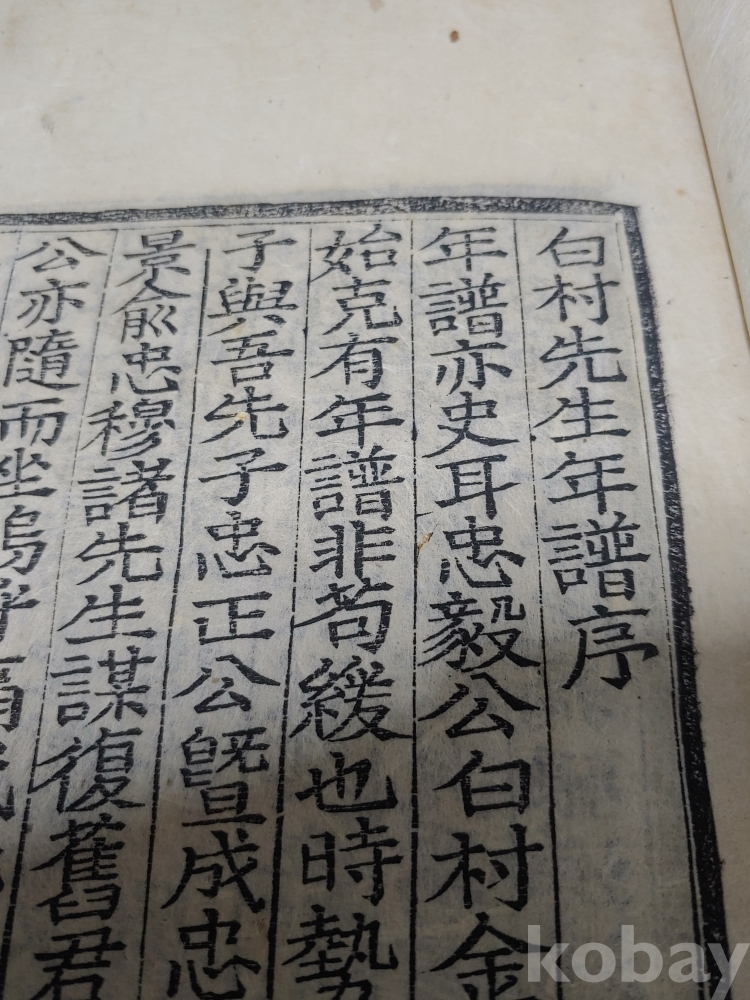 白村先生年譜序
年譜亦史耳忠毅公白村金
始克有年譜非苟緩也時勢
子與吾先子忠正公曁成忠
景兪忠穆諸先生謀復舊君
公亦隨而坐嗚呼
kobay